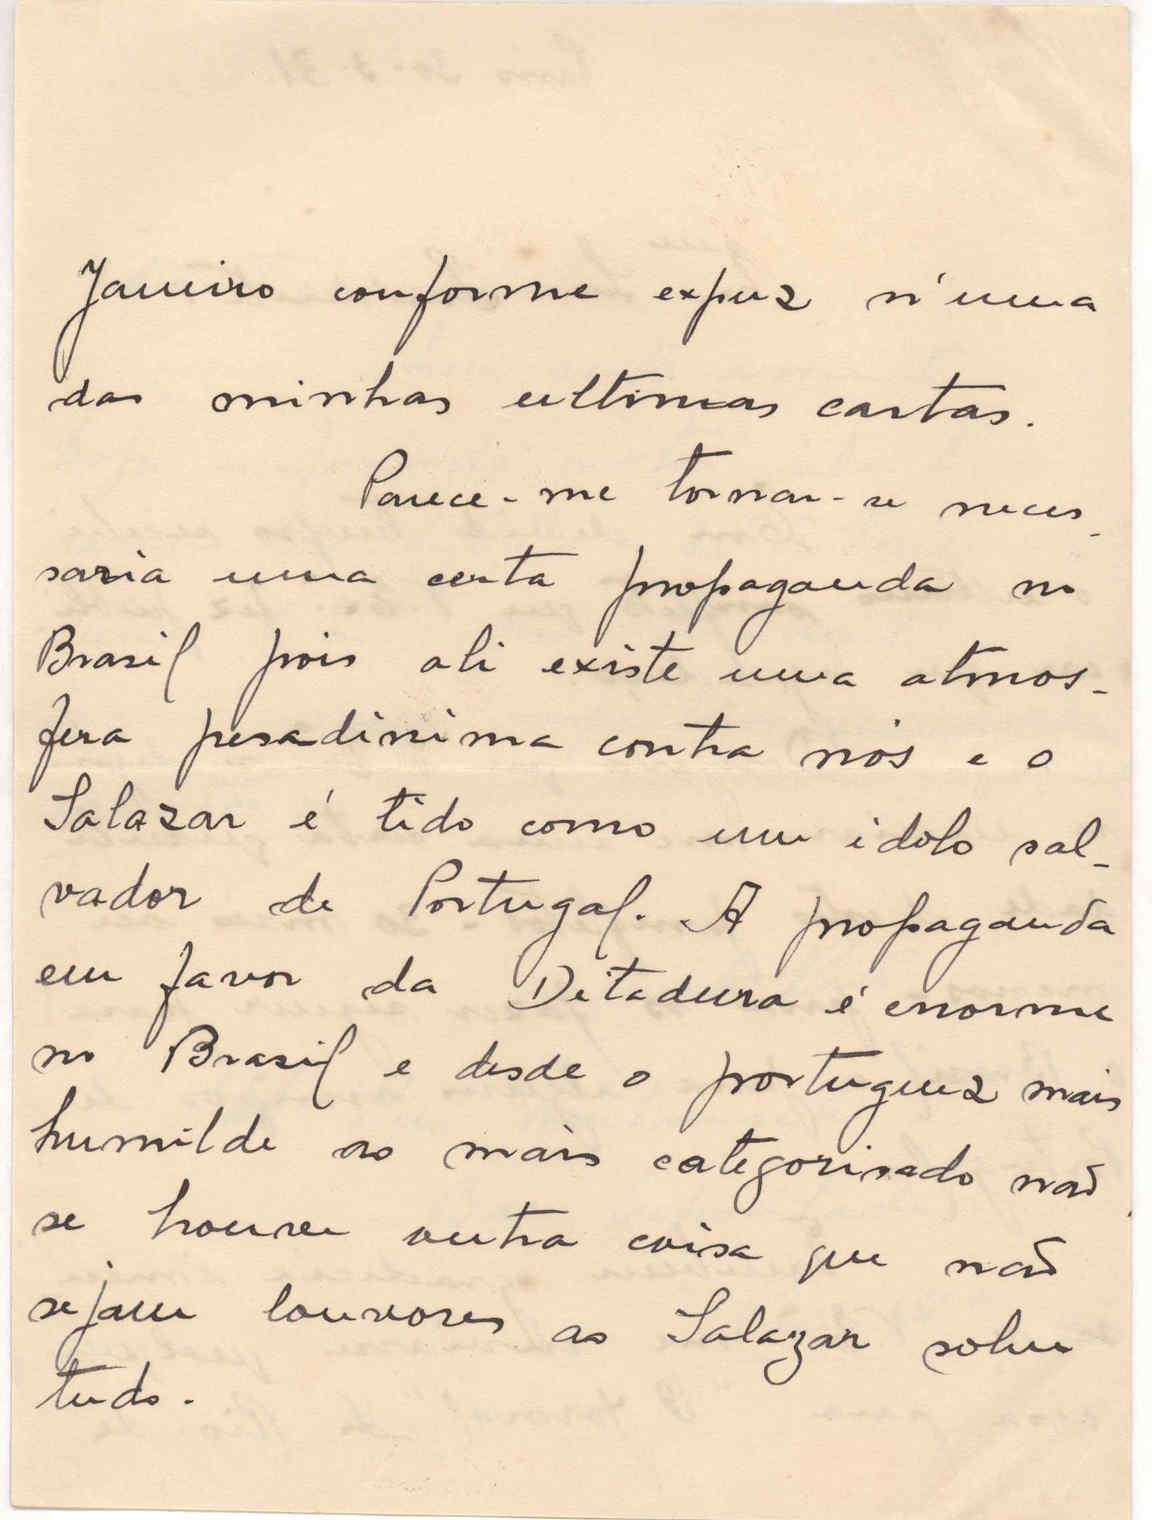 Janeiro conforme expuz n'uma
das minhas ultimas cartas.
Parece-me tornar-se neces-
saria uma certa propaganda no
Brasil pois ali existe uma atmos-
fera pesadinima contra nós e o
Salazar é tido como um idolo sal-
vador de Portugal. A propaganda
em favor da Ditadura é enorme
no Brasil e desde o portuguez mais
humilde ao mais categorisado não
se houve outra coisa que não
sejam louvores ao Salazar sobre
tudo.